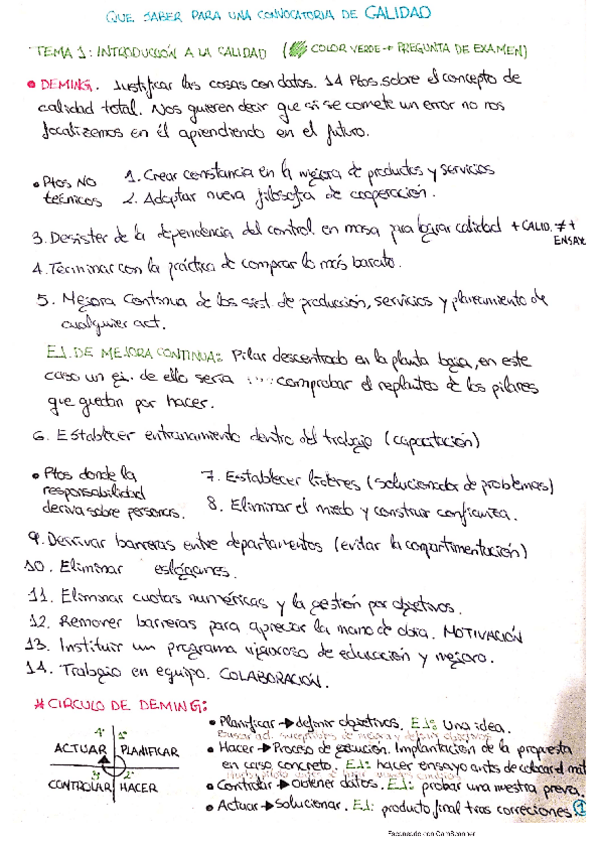 QUE SABER PARA UNA CONVOCATORIA DE CALIDAD
TEMA 1: INTRODUCCIÓN A LA CALIDAD ( COLOR VERDE → PREGUNTA DE EXAMEN)
• DEMING. Justificar las cosas con datos. 14 Ptos sobre el concepto de
calidad total. Nos quieren decir que si se comete un error no nos
focalizemos en él aprendiendo en el futuro.
• Ptos NO técnicos
1. Crear constancia en la mejora de productos y servicios
2. Adoptar nueva filosofía de cooperación.
3. Desister de la dependencia del control en masa para lograr calidad + CALID. ≠ +
ENSAY
4. Terminar con la práctica de comprar lo más barato.
5. Mejora Continua de los sist. de producción, servicios y planeamiento de
cualquier act.
EJ. DE MEJORA CONTINUA: Pilar descentrado en la planta baja, en este
caso un ej. de ello sería comprobar el replanteo de los pilares
que quedan por hacer.
6. Establecer entrenamiento dentro del trabajo (capacitación)
• Ptos donde la
responsabilidad
deriva sobre personas.
7. Establecer líderes (solucionador de problemas)
8. Eliminar el miedo y construir confianza.
9. Derrivar barreras entre departamentos (evitar la compartimentación)
10. Eliminar eslóganes.
11. Eliminar cuotas numéricas y la gestión por objetivos.
12. Remover barreras para apreciar la mano de obra. MOTIVACIÓN
13. Instituir un programa vigoroso de educación y mejora.
14. Trabajo en equipo. COLABORACIÓN.
* CIRCULO DE DEMING:
4º 1º
ACTUAR PLANIFICAR
3º 2º
CONTROLAR HACER
• Planificar → definir objetivos. EJ: Una idea.
• Hacer → Proceso de ejecución. Implantación de la propuesta
en caso concreto. EJ: hacer ensayo antes de colocar el mat
• Controlar → Obtener datos. EJ: probar una muestra previa.
• Actuar → solucionar. EJ: producto final tras correciones
1
Escaneado con CamScanner